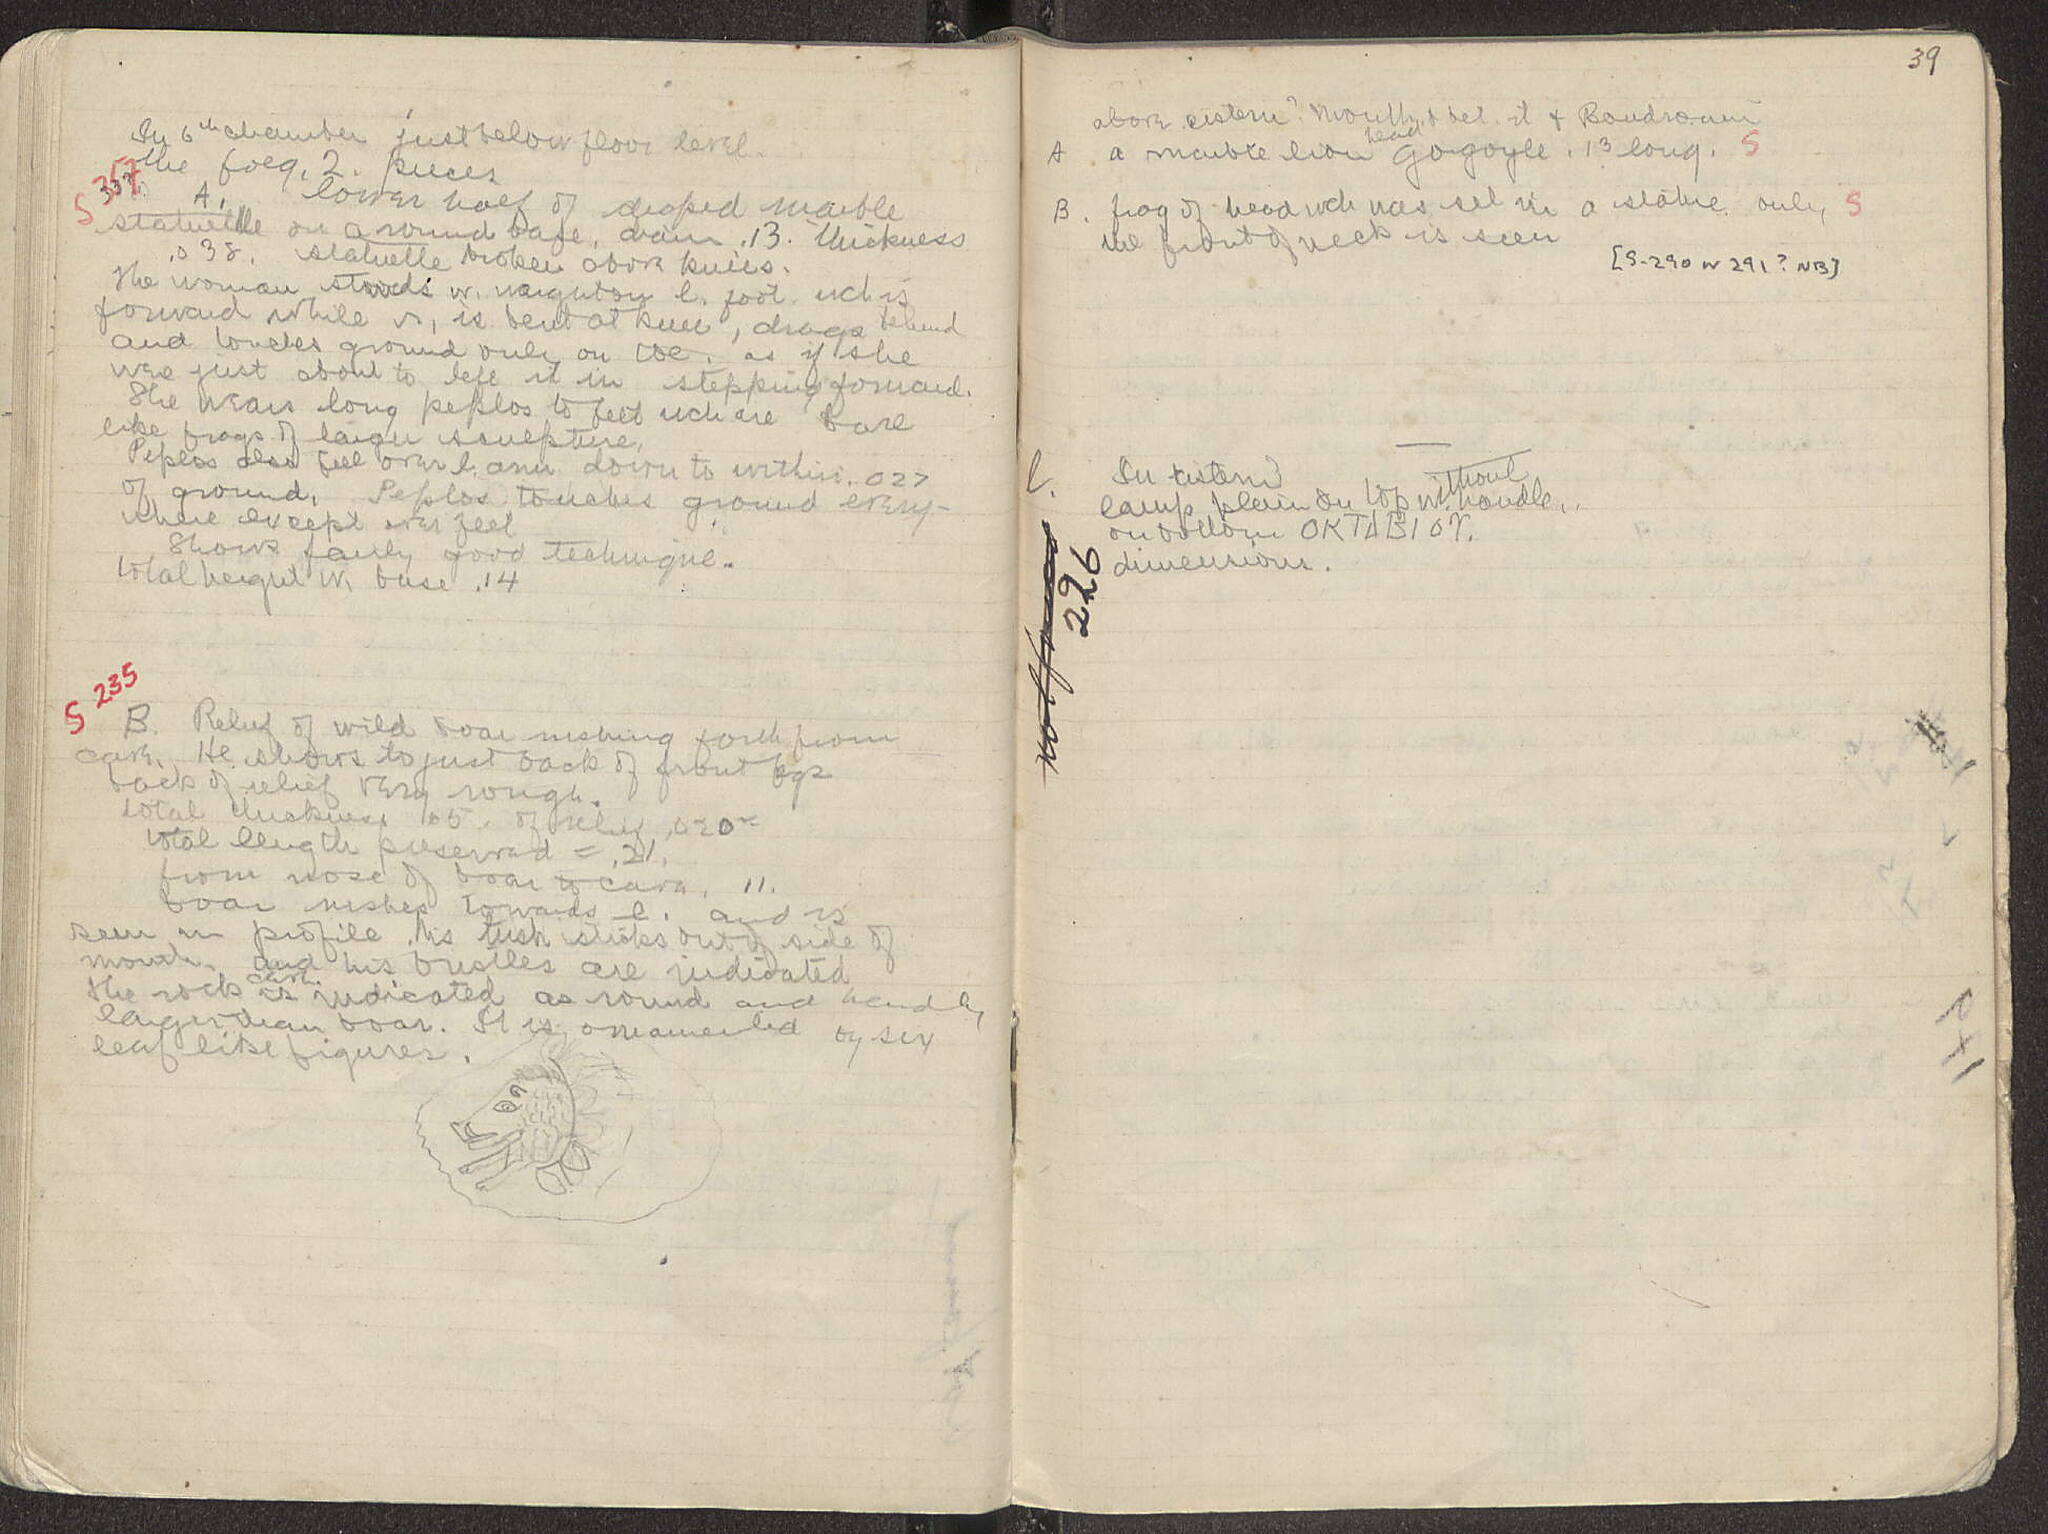 In 6th chamber just below floor level.
the foll. 2. pieces
S 357
337
A. lower half of draped marble
statuette on a round base, diam .13. thickness
.038. statuette broken above knees.
The woman stands w. weight on l. foot wch is
forward while r, is bent at knee, drags behind
and touches ground only on toe. as if she
was just about to lift it in stepping forward.
She wears long peplos to feet wch are bare
like frags of larger sculpture.
Peplos also fell over l. arm down to within .027
of ground. Peplos touches ground every-
where except over feet
Shows fairly good technique.
total height w. base .14
S 235
B. Relief of wild boar rushing forth from
cave. He shows to just back of front legs
back of relief very rough.
total thickness .05. of relief .020
total length preserved = .21.
from nose of boar to cave. 11.
boar rushes towards l. and is
seen in profile his tush sticks out of side of
mouth. and his bristles are indicated
the rock cave is indicated as round and hardly
larger than boar. It is ornamented by six
leaf like figures.
39
above cistern? mouth & bet. it & Boudroumi
A a marble lion head Gorgoyle .13 long. S
B. frag of head wch was set in a statue. only S
the front of neck is seen
[S-290 or 291? NB]
l. In cistern
lamp plain on top without handle.
on bottom ΟΚΤΑΒΙΟΥ.
dimensions.
not found
226